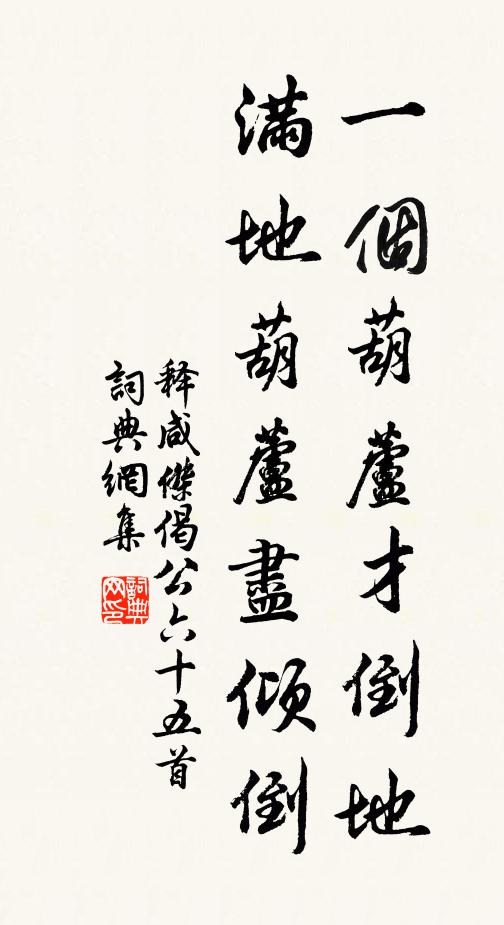 一個葫蘆才倒地
滿地葫蘆盡傾倒
释咸傑偈公六十五首
詞典網集
詞典
网印